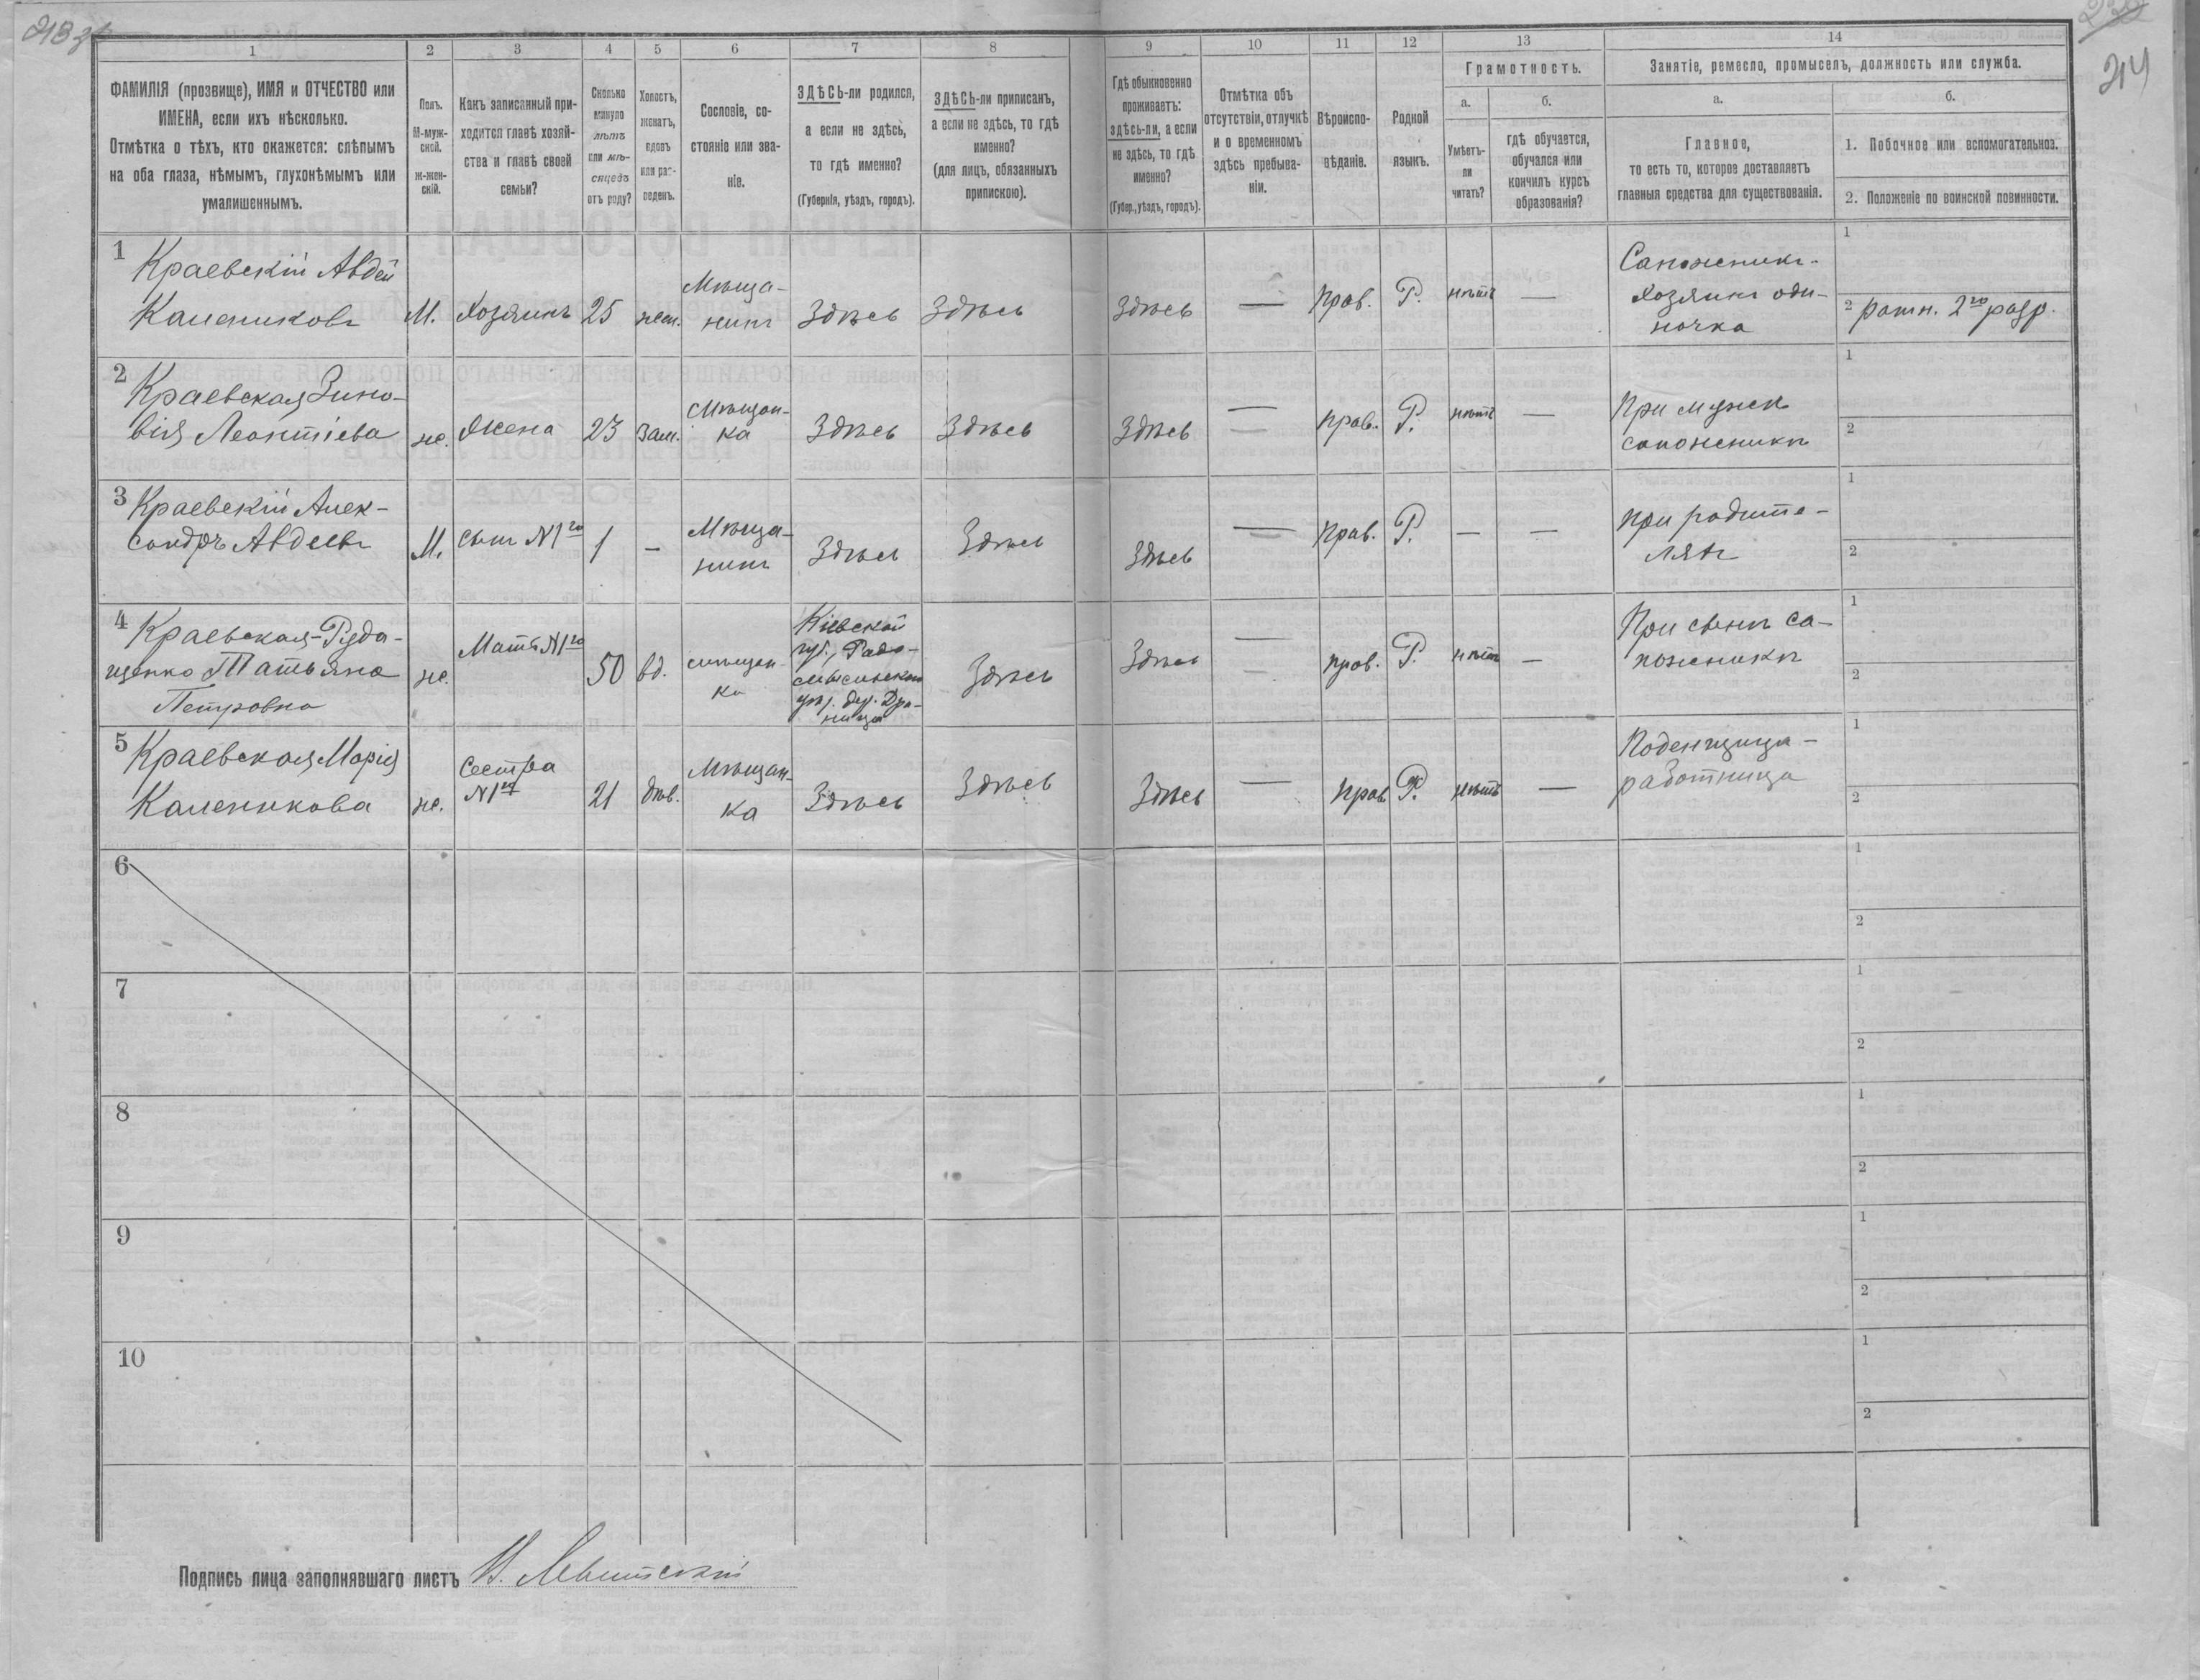 213 об
214
1
2
3
4
5
6
7
8
9
10
11
12
13
14
ФАМИЛІЯ (прозвище), ИМЯ и ОТЧЕСТВО или
ИМЕНА, если ихъ нѣсколько.
Отмѣтка о тѣхъ, кто окажется: слѣпымъ
на оба глаза, нѣмымъ, глухонѣмымъ или
умалишеннымъ.
Полъ.
М-муж-
ской.
ж-жен-
скій.
Какъ записанный при-
ходится главѣ хозяй-
ства и главѣ своей
семьи?
Сколько
минуло
лѣтъ
или мѣ-
сяцевъ
отъ роду?
Холостъ,
женатъ,
вдовъ
или раз-
веденъ.
Сословіе, со-
стояніе или зва-
ніе.
ЗДѢСЬ-ли родился,
а если не здѣсь,
то гдѣ именно?
(Губернія, уѣздъ, городъ).
ЗДѢСЬ-ли приписанъ,
а если не здѣсь, то гдѣ
именно?
(для лицъ, обязанныхъ
припискою).
Гдѣ обыкновенно
проживаетъ:
здѣсь-ли, а если
не здѣсь, то гдѣ
именно?
(Губер., уѣздъ, городъ).
Отмѣтка объ
отсутствіи, отлучкѣ
и о временномъ
здѣсь пребыва-
ніи.
Вѣроиспо-
вѣданіе.
Родной
языкъ.
Грамотность.
а.
б.
Умѣетъ-
ли
читать?
гдѣ обучается,
обучался или
кончилъ курсъ
образованія?
Занятіе, ремесло, промыселъ, должность или служба.
а.
б.
Главное,
то есть то, которое доставляетъ
главныя средства для существованія.
1. Побочное или вспомогательное.
2. Положеніе по воинской повинности.
1
Краевскій Авдей
Калениковъ
М.
Хозяинъ
25
жен.
Мѣща-
нинъ
Здѣсь
Здѣсь
Здѣсь
—
прав.
Р.
нѣтъ
—
Сапожникъ-
хозяинъ оди-
ночка
1
2 ратн. 2го разр.
2
Краевская Зино-
вія Леонтіева
ж.
Жена
23
зам.
Мѣщан-
ка
Здѣсь
Здѣсь
Здѣсь
—
прав.
Р.
нѣтъ
—
При мужѣ
сапожникѣ
1
2
3
Краевскій Алек-
сандръ Авдеевъ
М.
сынъ №1го
1
—
Мѣща-
нинъ
Здѣсь
Здѣсь
Здѣсь
—
прав.
Р.
—
—
При родите-
ляхъ
1
2
4
Краевская-Руда-
щенко Татьяна
Петровна
ж.
Мать №1го
50
вд.
мѣщан-
ка
Кіевской
губ., Радо-
мысльскаго
уѣз. дер.
Здѣсь
Здѣсь
—
прав.
Р.
нѣтъ
—
При сынѣ са-
пожникѣ
1
2
5
Краевская Марія
Каленикова
ж.
Сестра
№1го
21
дѣв.
Мѣщан-
ка
Здѣсь
Здѣсь
Здѣсь
—
прав.
Р.
нѣтъ
—
Поденщица-
работница
1
2
6
1
2
7
1
2
8
1
2
9
1
2
10
1
2
Подпись лица заполнявшаго листъ